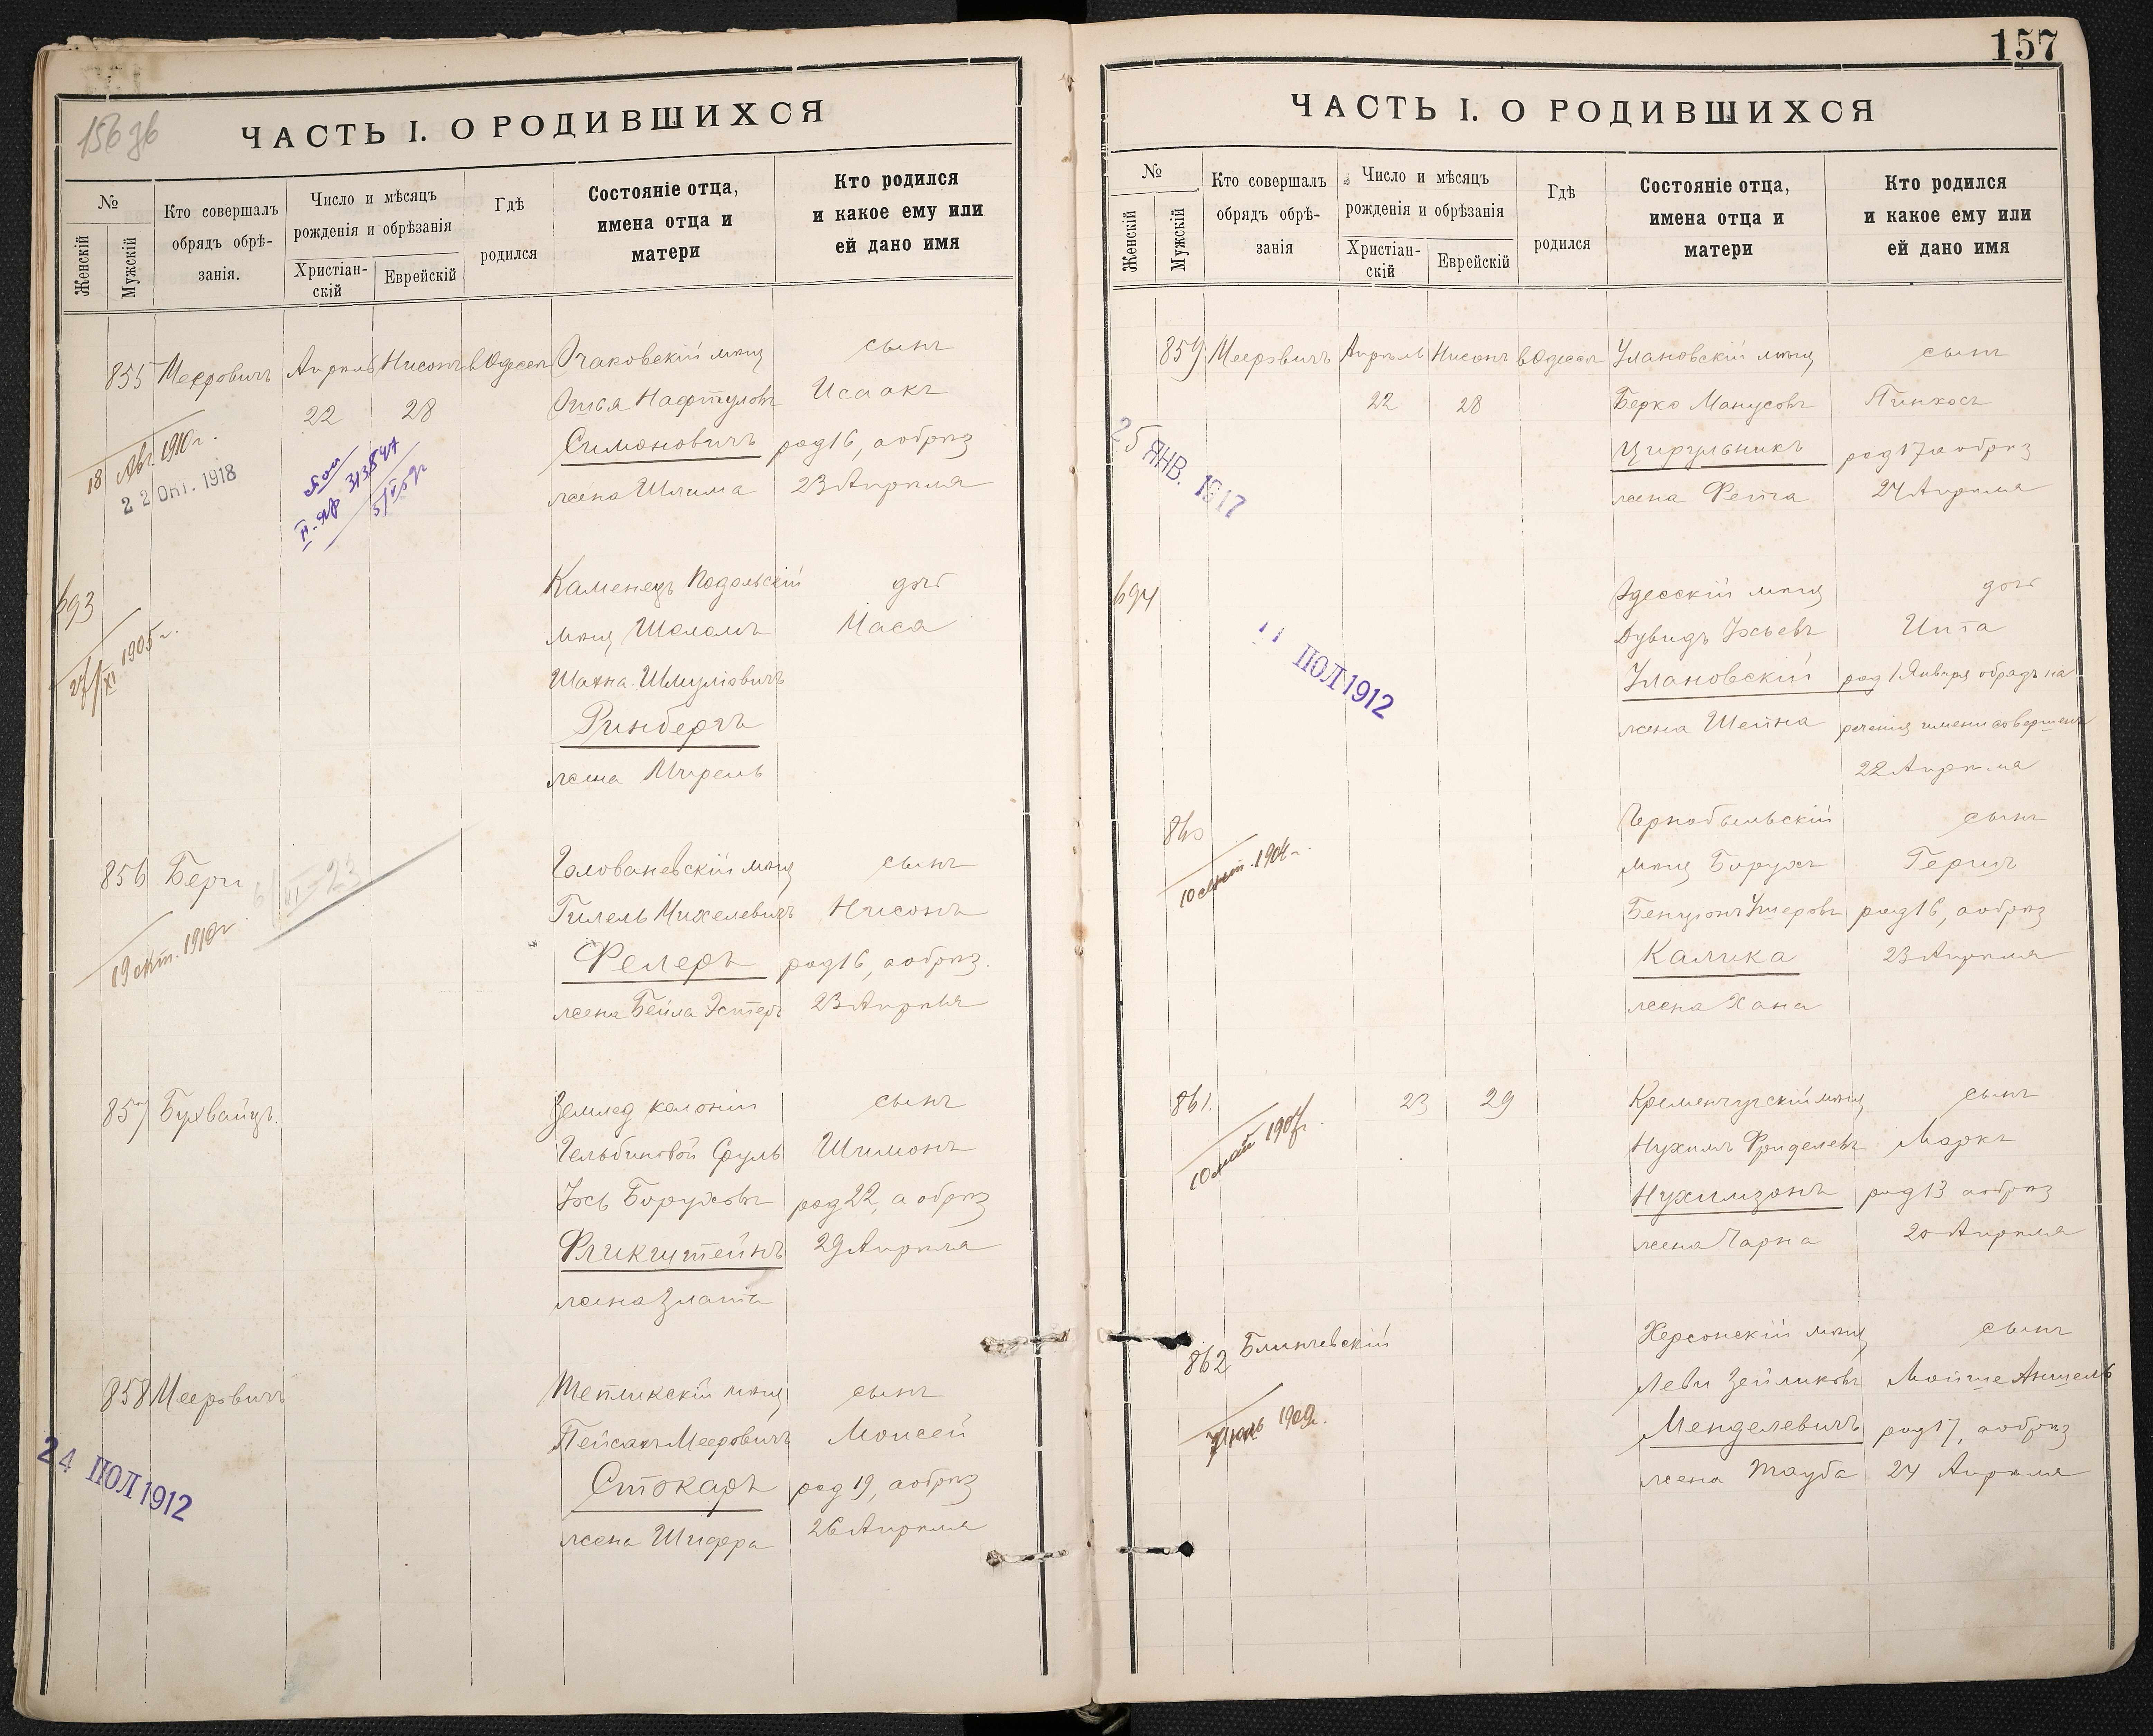 156 зв
ЧАСТЬ I. О РОДИВШИХСЯ
№
Женскій
Мужскій
Кто совершалъ
обрядъ обрѣ-
занія.
Число и мѣсяцъ
рожденія и обрѣзанія
Христіан-
скій
Еврейскій
Гдѣ
родился
Состояніе отца,
имена отца и
матери
Кто родился
и какое ему или
ей дано имя
855 Мееровичъ Апрѣль Нисонъ в Одессѣ Очаковскій мѣщ сынъ
22 28 Нафтуловъ Исаакъ
Симоновичъ род 16, а обрѣз
жена Шлима 23 Апрѣля
18 Авг. 1910 г.
22 Окт. 1918
693 Каменецъ Подольскій дочь
мѣщ Шоломъ Мася
Шахна Шмуліовичъ
Ринбергъ
жена Мирель
27/XI 1905 г.
856 Бери Голованевскій мѣщ сынъ
Гилель Михелевичъ Нисонъ
Фелеръ род 16, а обрѣз.
жена Бейла Эстеръ 23 Апрѣля
19 окт. 1910 г
857 Бухвайцъ. Землед колоніи сынъ
Сруль Шимонъ
Іось Боруховъ род 22, а обрѣз
Фликштейнъ 29 Апрѣля
жена Злата
858 Мееровичъ Тепликскій мѣщ сынъ
Пейсахъ Мееровичъ Моисей
Стокаръ род 19, а обрѣз
жена Шифра 26 Апрѣля
24 ІЮЛ 1912
157
ЧАСТЬ I. О РОДИВШИХСЯ
№
Женскій
Мужскій
Кто совершалъ
обрядъ обрѣ-
занія
Число и мѣсяцъ
рожденія и обрѣзанія
Христіан-
скій
Еврейскій
Гдѣ
родился
Состояніе отца,
имена отца и
матери
Кто родился
и какое ему или
ей дано имя
859 Мееровичъ Апрѣль Нисонъ в Одессѣ Улановскій мѣщ сынъ
22 28 Берко Манусовъ Пинхосъ
Цирульникъ род 17 а обрѣз
жена Фейга 24 Апрѣля
25 ЯНВ. 1917
694 Одесскій мѣщ дочь
Дувидъ Іосьевъ Ита
Улановскій род 1 Января обрядъ на
жена Шейна реченія имени совершенъ
22 Апрѣля
11 ІЮЛ 1912
860 Чернобыльскій сынъ
мѣщ Борухъ Гершъ
Бенціонъ Ушеровъ род 16, а обрѣз
Калика 23 Апрѣля
жена Хана
10 сент. 1904 г.
861. 23 29 Кременчугскій мѣщ сынъ
Нухимъ Фриделевъ Маркъ
Нухимзонъ род 13 а обрѣз
жена Чарна 20 Апрѣля
10 май 1907 г.
862 Блинчевскій Херсонскій мѣщ сынъ
Леви Зейликовъ Мойше Аншель
Менделевичъ род 17, а обрѣз
жена Тауба 24 Апрѣля
1909 г.